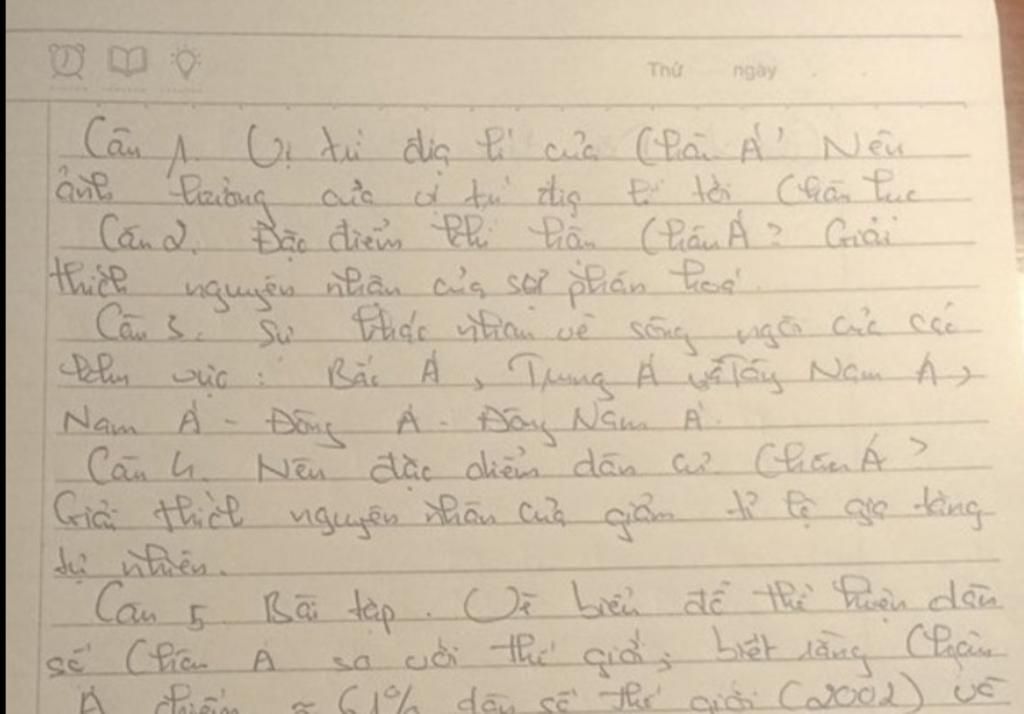 Thứ ngày
Câu 1. Vị trí địa lí của Châu Á? Nêu
ảnh hưởng của vị trí địa lí tới Châu lục
Câu 2. Đặc điểm khí hậu Châu Á? Giải
thích nguyên nhân của sự phân hoá.
Câu 3. Sự khác nhau về sông ngòi của các
khu vực: Bắc Á, Trung Á và Tây Nam Á,
Nam Á - Đông Á - Đông Nam Á.
Câu 4. Nêu đặc điểm dân cư Châu Á?
Giải thích nguyên nhân của giảm tỉ lệ gia tăng
tự nhiên.
Câu 5 Bài tập. Vẽ biểu đồ thể hiện dân
số Châu Á so với thế giới; biết rằng Châu
Á chiếm ≈ 61% dân số thế giới (2002) về